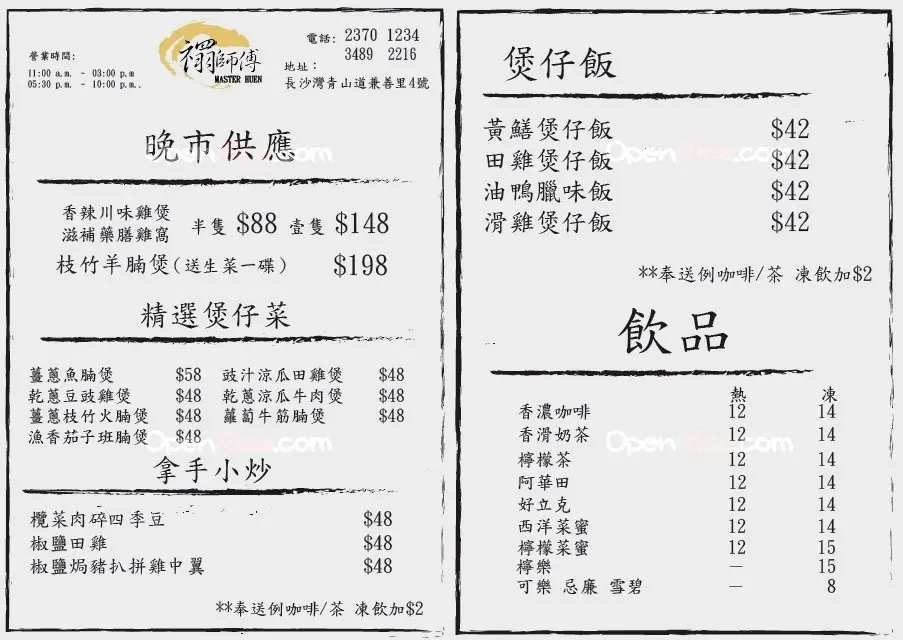 營業時間:
11:00 a.m. - 03:00 p.m
05:30 p.m. - 10:00 p.m..
禤師傅
MASTER HUEN
電話: 2370 1234
3489 2216
地址:
長沙灣青山道兼善里4號
晚市供應
香辣川味雞煲
滋補藥膳雞窩
半隻 $88 壹隻 $148
枝竹羊腩煲(送生菜一碟) $198
精選煲仔菜
薑蔥魚腩煲 $58 豉汁涼瓜田雞煲 $48
乾蔥豆豉雞煲 $48 乾蔥涼瓜牛肉煲 $48
薑蔥枝竹火腩煲 $48 蘿蔔牛筋腩煲 $48
漁香茄子班腩煲 $48
拿手小炒
欖菜肉碎四季豆 $48
椒鹽田雞 $48
椒鹽焗豬扒拼雞中翼 $48
**奉送例咖啡/茶 凍飲加$2
煲仔飯
黃鱔煲仔飯 $42
田雞煲仔飯 $42
油鴨臘味飯 $42
滑雞煲仔飯 $42
**奉送例咖啡/茶 凍飲加$2
飲品
熱 凍
香濃咖啡 12 14
香滑奶茶 12 14
檸檬茶 12 14
阿華田 12 14
好立克 12 14
西洋菜蜜 12 14
檸檬菜蜜 12 15
檸樂 — 15
可樂 忌廉 雪碧 — 8
OpenRice.com
OpenRice.com
OpenRice.com
OpenRice.com